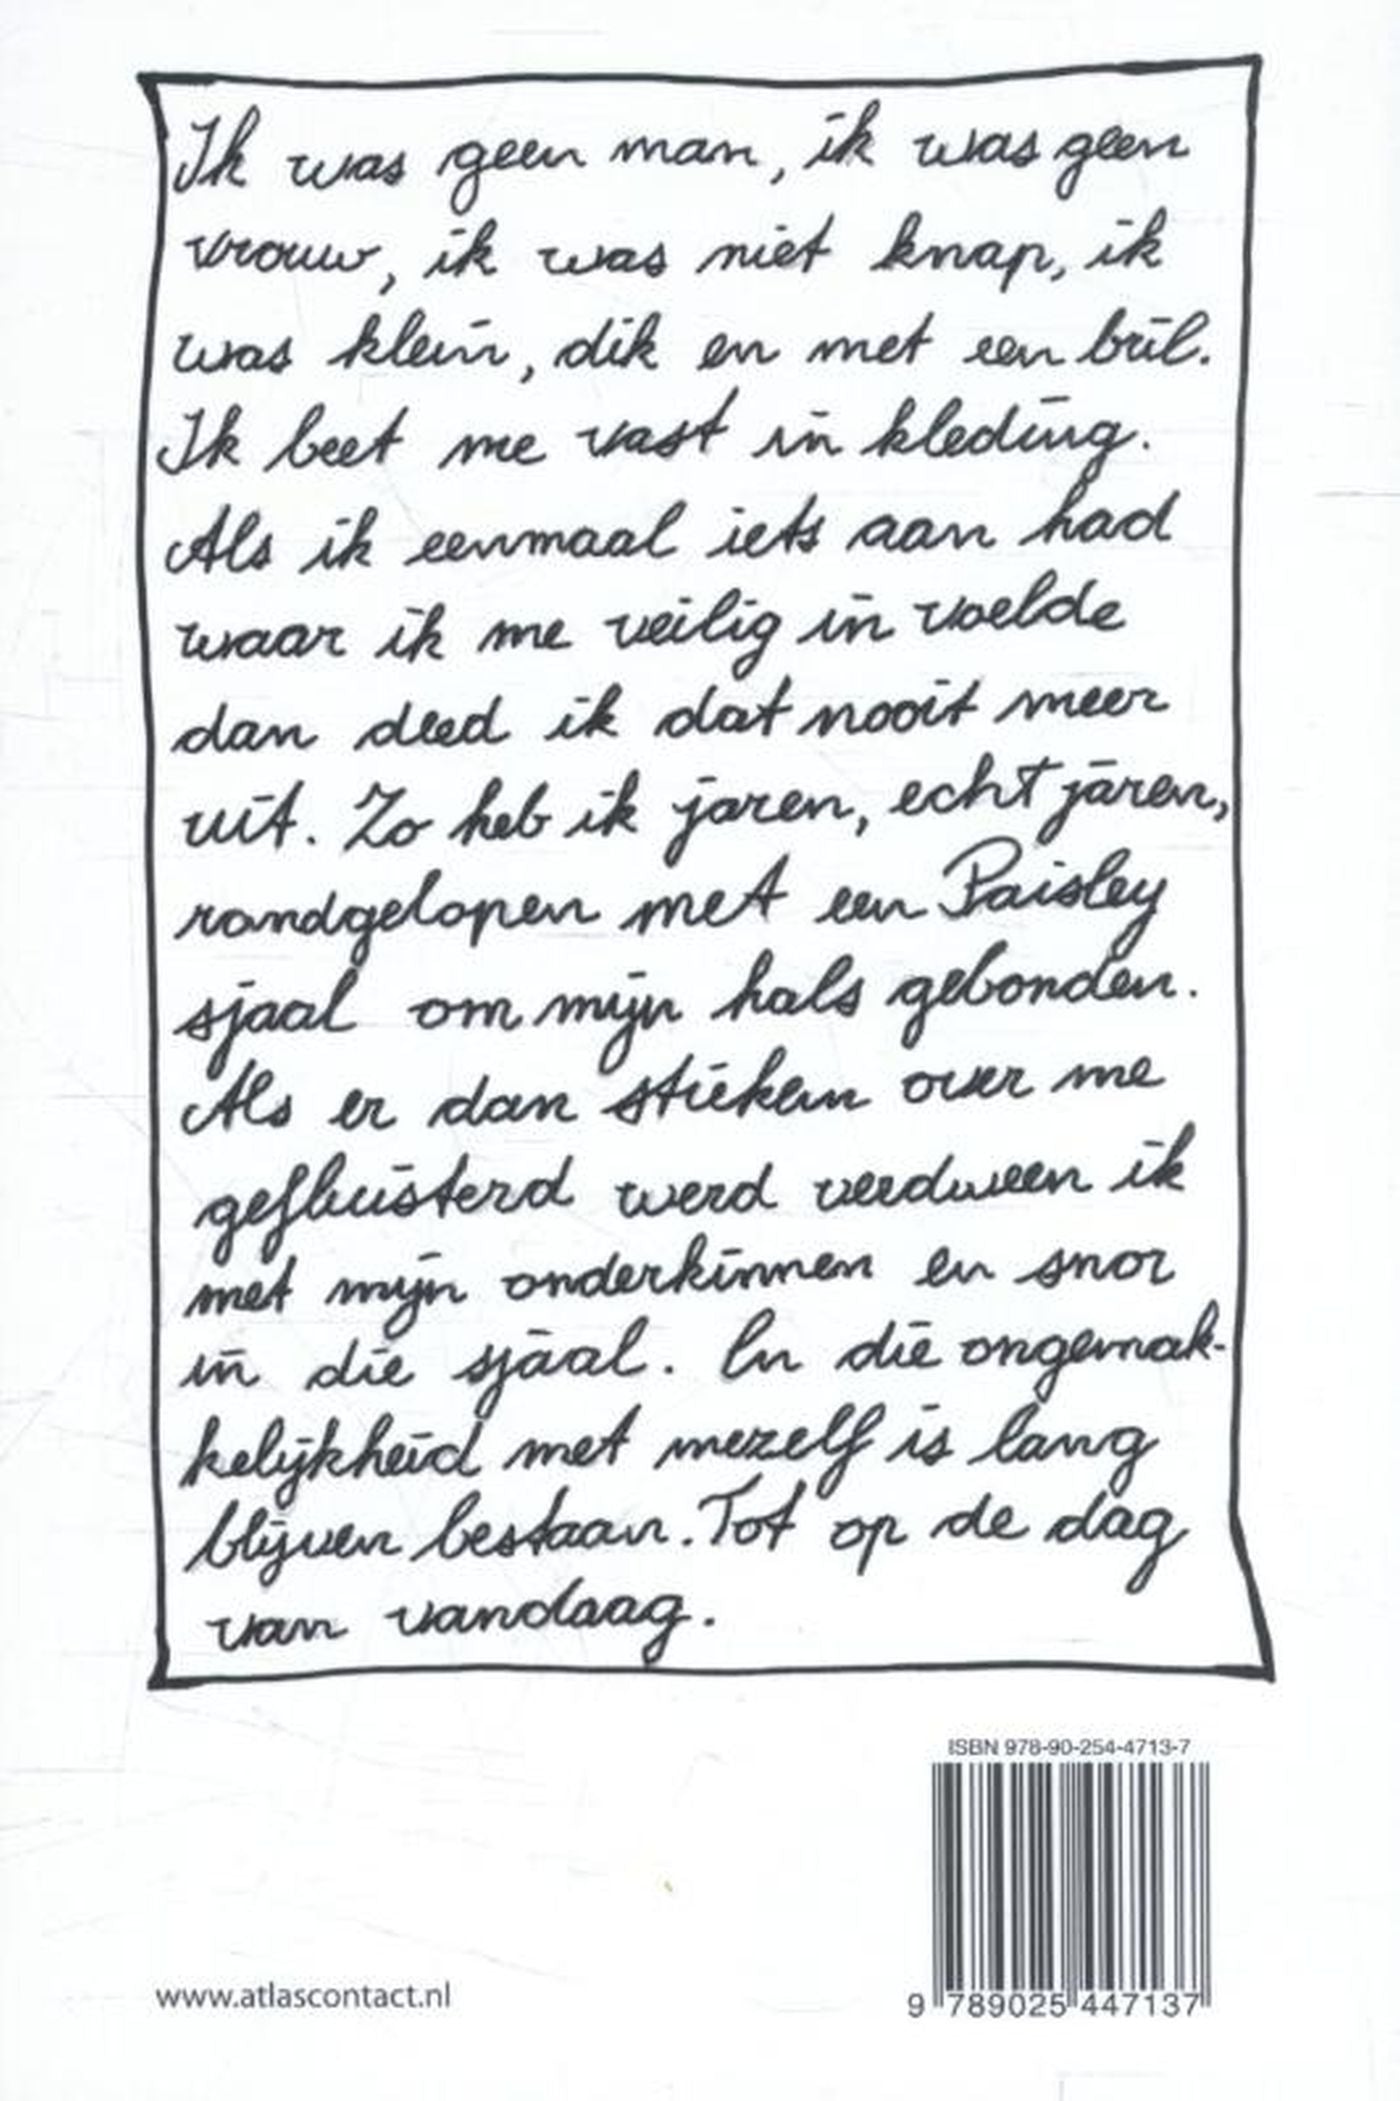 Ik was geen man, ik was geen
vrouw, ik was niet knap, ik
was klein, dik en met een bril.
Ik beet me vast in kleding.
Als ik eenmaal iets aan had
waar ik me veilig in voelde
dan deed ik dat nooit meer
uit. Zo heb ik jaren, echt jaren,
rondgelopen met een Paisley
sjaal om mijn hals gebonden.
Als er dan stiekem over me
gefluisterd werd verdween ik
met mijn onderkinnen en snor
in die sjaal. En die ongemak-
kelijkheid met mezelf is lang
blijven bestaan. Tot op de dag
van vandaag.
ISBN 978-90-254-4713-7
www.atlascontact.nl
9 789025 447137